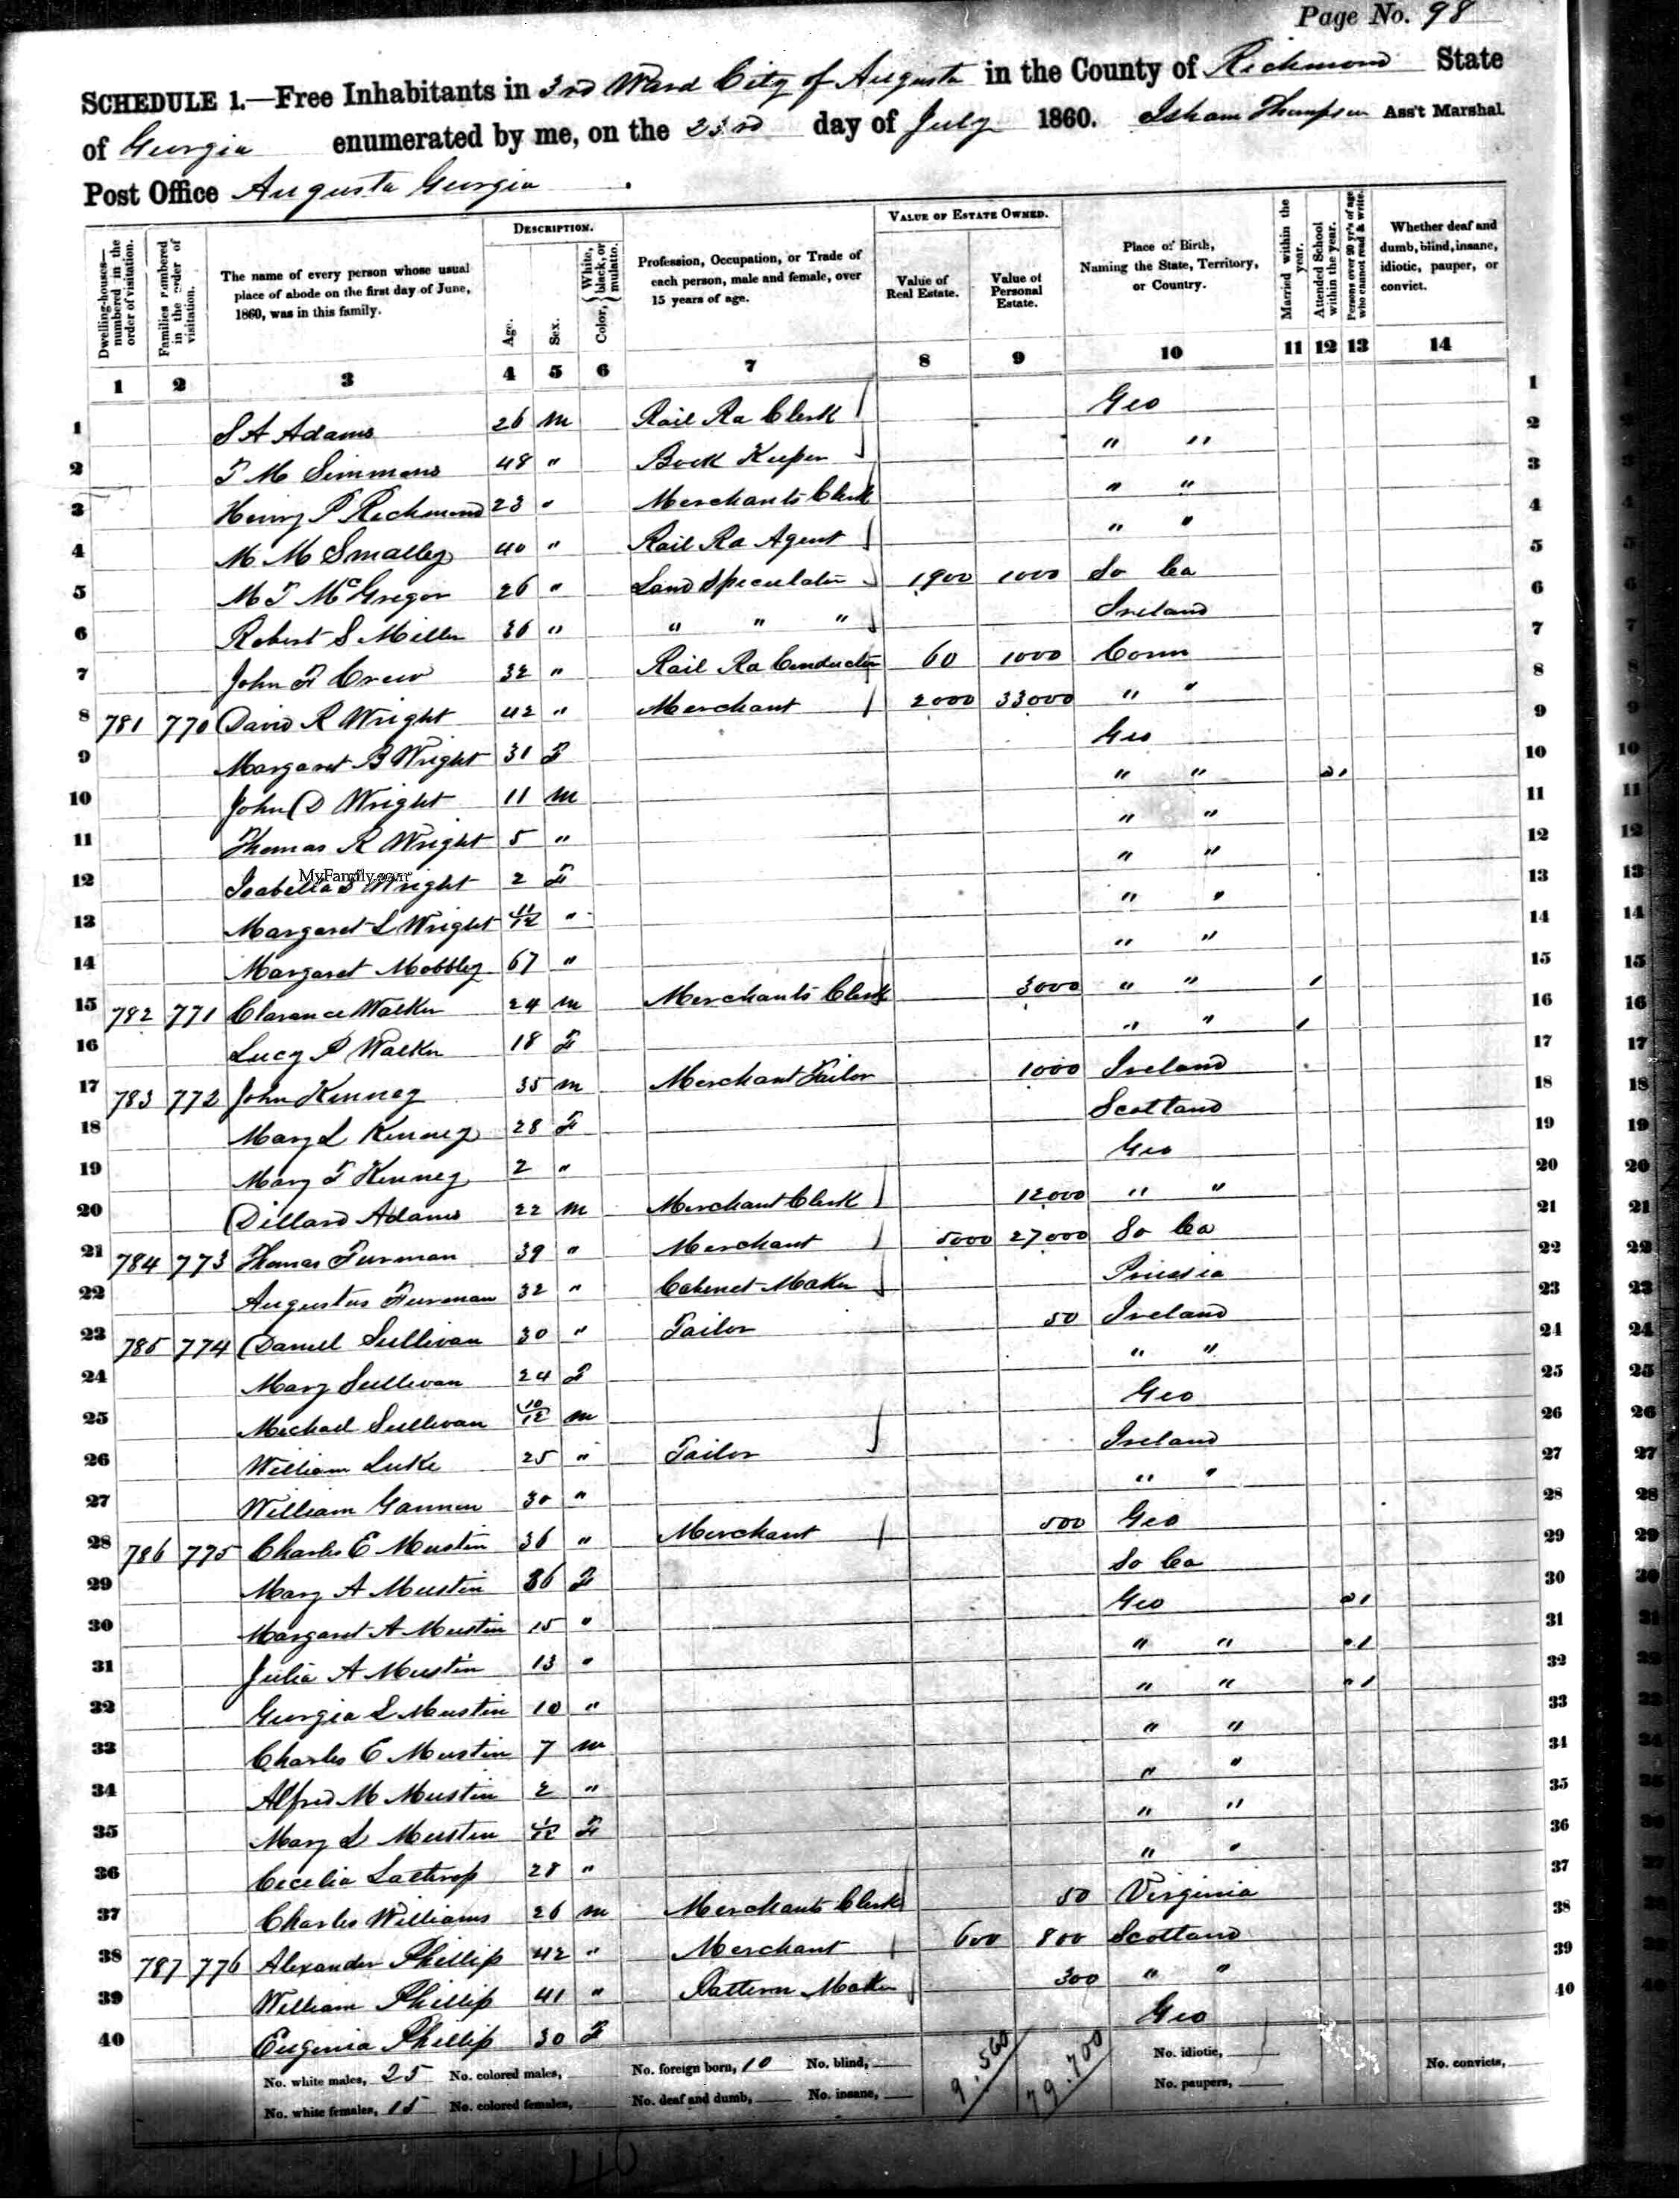 Page No. 98
SCHEDULE 1.—Free Inhabitants in 3rd Ward City of Augusta in the County of Richmond State
of Georgia enumerated by me, on the 23rd day of July 1860. Isham Thompson Ass't Marshal
Post Office Augusta Georgia
Dwelling-houses—numbered in the order of visitation.
Families numbered in the order of visitation.
The name of every person whose usual place of abode on the first day of June, 1860, was in this family.
DESCRIPTION.
Age.
Sex.
Color, { White, black, or mulatto.
Profession, Occupation, or Trade of each person, male and female, over 15 years of age.
VALUE OF ESTATE OWNED.
Value of Real Estate.
Value of Personal Estate.
Place of Birth, Naming the State, Territory, or Country.
Married within the year.
Attended School within the year.
Persons over 20 yr's of age who cannot read & write.
Whether deaf and dumb, blind, insane, idiotic, pauper, or convict.
1 2 3 4 5 6 7 8 9 10 11 12 13 14
1 S A Adams 26 m Rail Ra Clerk Geo 1
2 T M Simmons 48 " Book Keeper " " 2
3 Henry P Richmond 23 " Merchants Clerk " " 3
4 M M Smalley 40 " Rail Ra Agent " " 4
5 M T McGregor 26 " Land Speculator 1900 1000 So Ca 5
6 Robert S Miller 36 " " " " Ireland 6
7 John F Crew 32 " Rail Ra Conductor 60 1000 Conn 7
8 781 770 David R Wright 42 " Merchant 2000 33000 " " 8
9 Margaret B Wright 31 F Geo 9
10 John D Wright 11 m " " 1 10
11 Thomas R Wright 5 " " " 11
12 Isabella S Wright 2 F " " 12
MyFamily.com
13 Margaret L Wright 11/12 " " " 13
14 Margaret Mobbley 67 " " " 14
15 782 771 Clarance Walker 24 m Merchants Clerk 3000 " " 1 15
16 Lucy P Walker 18 F " " 1 16
17 783 772 John Kenney 35 m Merchant Tailor 1000 Ireland 17
18 Mary L Kenney 28 F Scotland 18
19 Mary F Kenney 2 " Geo 19
20 Dillard Adams 22 m Merchant Clerk 12000 " " 20
21 784 773 Thomas Furman 39 " Merchant 5000 27000 So Ca 21
22 Augustus Furman 32 " Cabinet Maker Prussia 22
23 785 774 Daniel Sullivan 30 " Tailor 50 Ireland 23
24 Mary Sullivan 24 F " " 24
25 Michael Sullivan 10/12 m Geo 25
26 William Luke 25 " Tailor Ireland 26
27 William Gannon 30 " " " 27
28 786 775 Charles E Mustin 36 " Merchant 500 Geo 28
29 Mary A Mustin 36 F So Ca 29
30 Margaret A Mustin 15 " Geo 1 30
31 Julia A Mustin 13 " " " 1 31
32 Georgia L Mustin 10 " " " 1 32
33 Charles E Mustin 7 m " " 33
34 Alfred M Mustin 2 " " " 34
35 Mary L Mustin 1/12 F " " 35
36 Cecelia Lathrop 28 " " " 36
37 Charles Williams 26 m Merchants Clerk 50 Virginia 37
38 787 776 Alexander Phillip 42 " Merchant 600 800 Scotland 38
39 William Phillip 41 " Pattern Maker 300 " " 39
40 Eugenia Phillip 30 F Geo 40
No. white males, 25 No. colored males, No. foreign born, 10 No. blind, 9.560 79.700 No. idiotic, No. convicts,
No. white females, 15 No. colored females, No. deaf and dumb, No. insane, No. paupers,
40